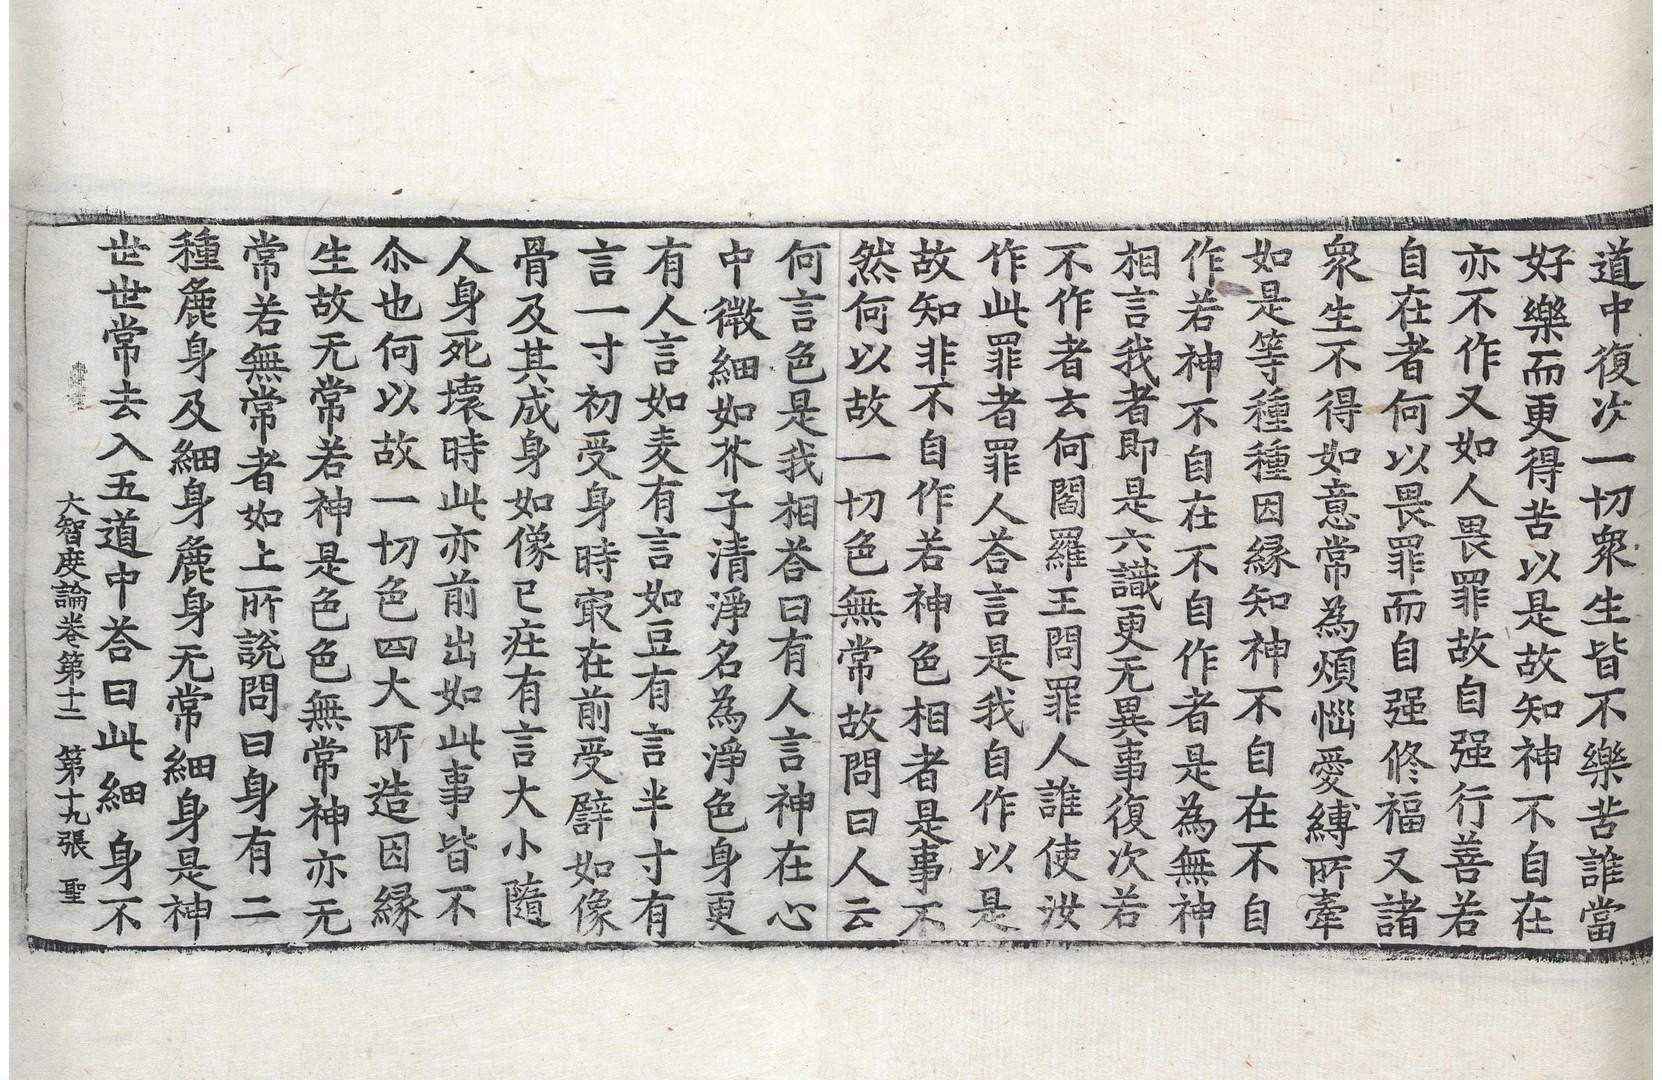 道中復次一切衆生皆不樂苦誰當
好樂而更得苦以是故知神不自在
亦不作又如人畏罪故自强行善若
自在者何以畏罪而自强修福又諸
衆生不得如意常為煩惱愛縛所牽
如是等種種因縁知神不自在不自
作若神不自在不自作者是為無神
相言我者即是六識更无異事復次若
不作者云何閻羅王問罪人誰使汝
作此罪者罪人荅言是我自作以是
故知非不自作若神色相者是事不
然何以故一切色無常故問曰人云
何言色是我相荅曰有人言神在心
中微細如芥子清淨名為淨色身更
有人言如麦有言如豆有言半寸有
言一寸初受身時㝡在前受譬如像
骨及其成身如像已疘有言大小隨
人身死壞時此亦前出如此事皆不
尒也何以故一切色四大所造因縁
生故无常若神是色色無常神亦无
常若無常者如上所說問曰身有二
種麁身及細身麁身无常細身是神
世世常去入五道中荅曰此細身不
大智度論卷第十二 第十九張 聖